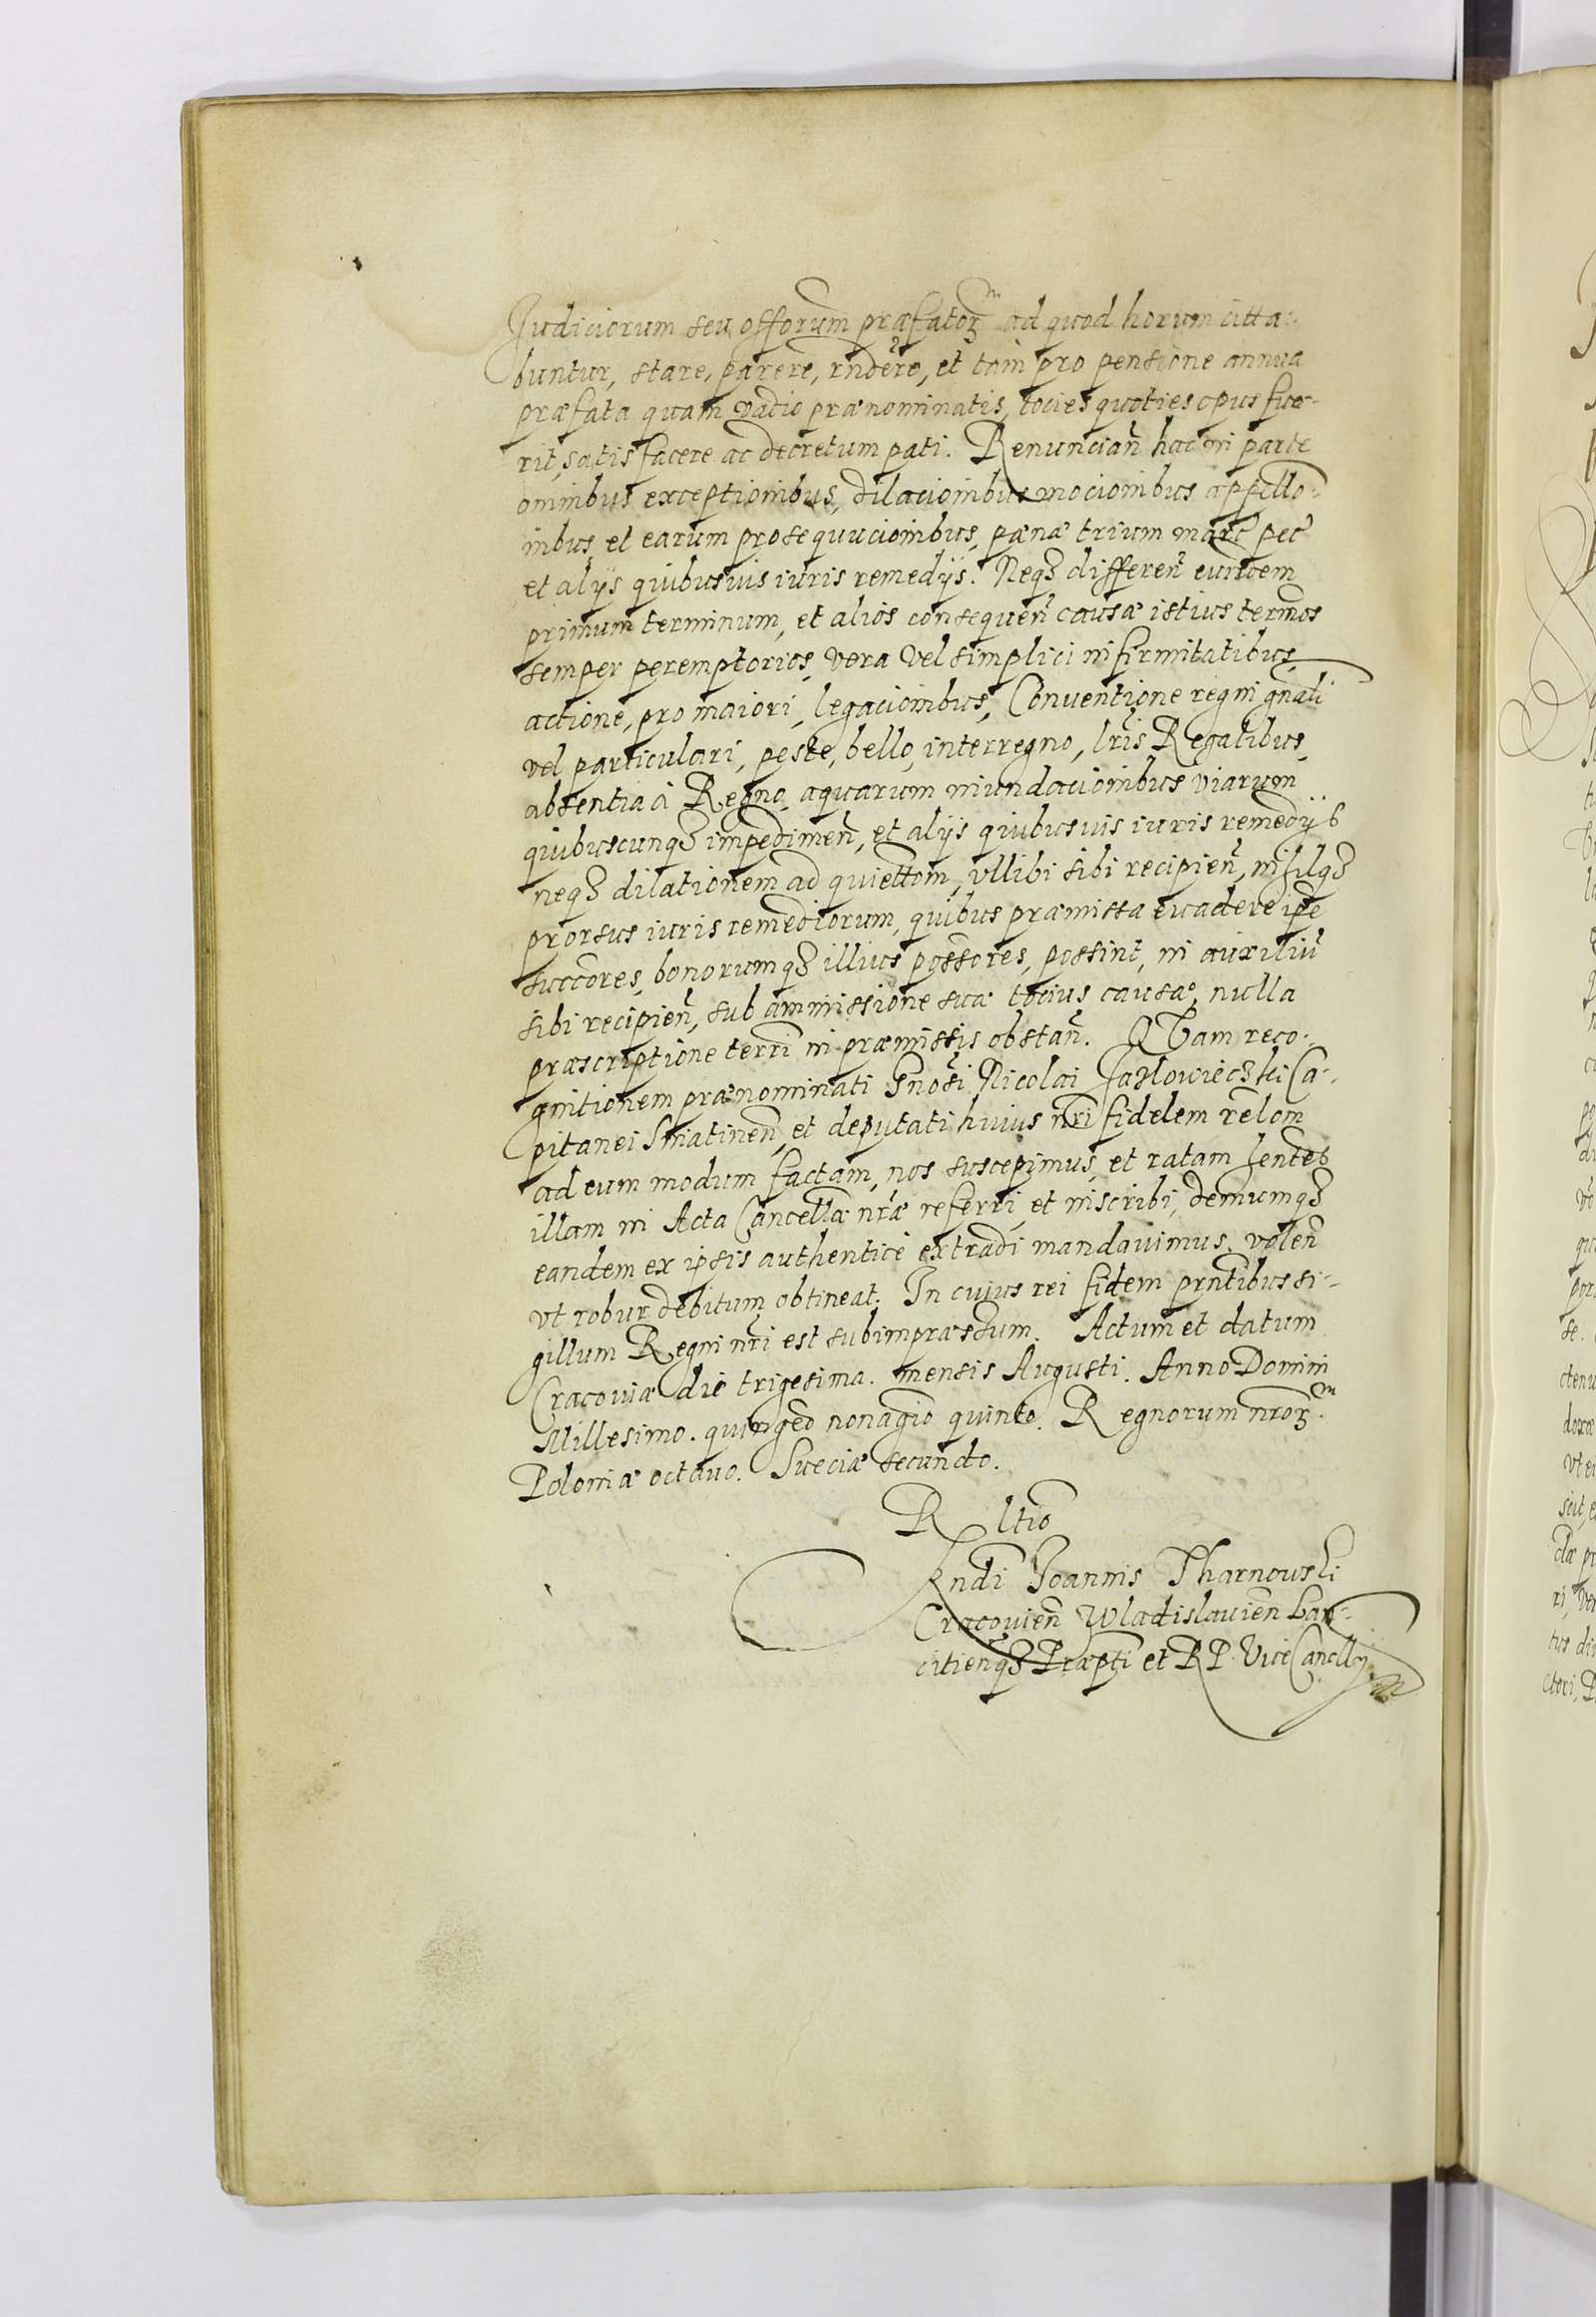 Judiciorum seu offorum præfatorꝫ ad quod horum citta-
buntur, stare, parere, rndere, et tam pro pensione annua
præfata quam vadio prænominatis, tocies quoties opus fue-
rit, satisfacere ac decretum pati. Renuncian̄ hac in parte
omnibus exceptionibus, dilacionibus mocionibus appello-
nibus, et earum prosequucionibus, pænæ trium marc̄ pec̄
et alys quibusuis iuris remedys. Neqꝫ differen̄ eundem
primum terminum, et alios consequen̄ causæ istius termos
semper peremptorios, vera vel simplici infirmitatibus,
actione, pro maiori, legacionibus, Conuentione regni gnāli
vel particulari, peste, bello, interregno, lris Regalibus,
absentia à Regno, aquarum inundacionibus viarum
quibuscunqꝫ impedimen̄, et alys quibusuis iuris remedys
neqꝫ dilationem ad quiettom, vllibi sibi recipien̄, nihilqꝫ
prorsus iuris remediorum, quibus præmissa euadere ipe
succores, bonorumqꝫ illius possores, possint, in auxiliū
sibi recipien̄, sub ammissione suæ tocius causæ, nulla
præscriptione terri in præmissis obstan̄. QVam reco-
gnitionem prænominati Gnosi Nicolai Jazlowieczki Ca-
pitanei Sniatinen̄, et deputati huius nri fidelem relom
ad eum modum factam, nos suscepimus, et ratam hentes
illam in Acta Cancellæ nræ referri, et inscribi, demumqꝫ
eandem ex ipsis authenticè extradi mandauimus. volen̄
vt robur debitum obtineat. In cuius rei fidem prntibus si-
gillum Regni nri est subimpræssum. Actum et datum
Cracouiæ die trigesima. mensis Augusti. Anno Domini
Millesimo. quingeō nonagiō quinto. Regnorum nrorꝫ
Poloniæ octauo. Sueciæ secundo.
R ltio
Rndi Joannis Tharnouski
Cracouien̄ Wladislauien̄ Lan-
citienqꝫ Præpti et RP. ViceCancllÿ